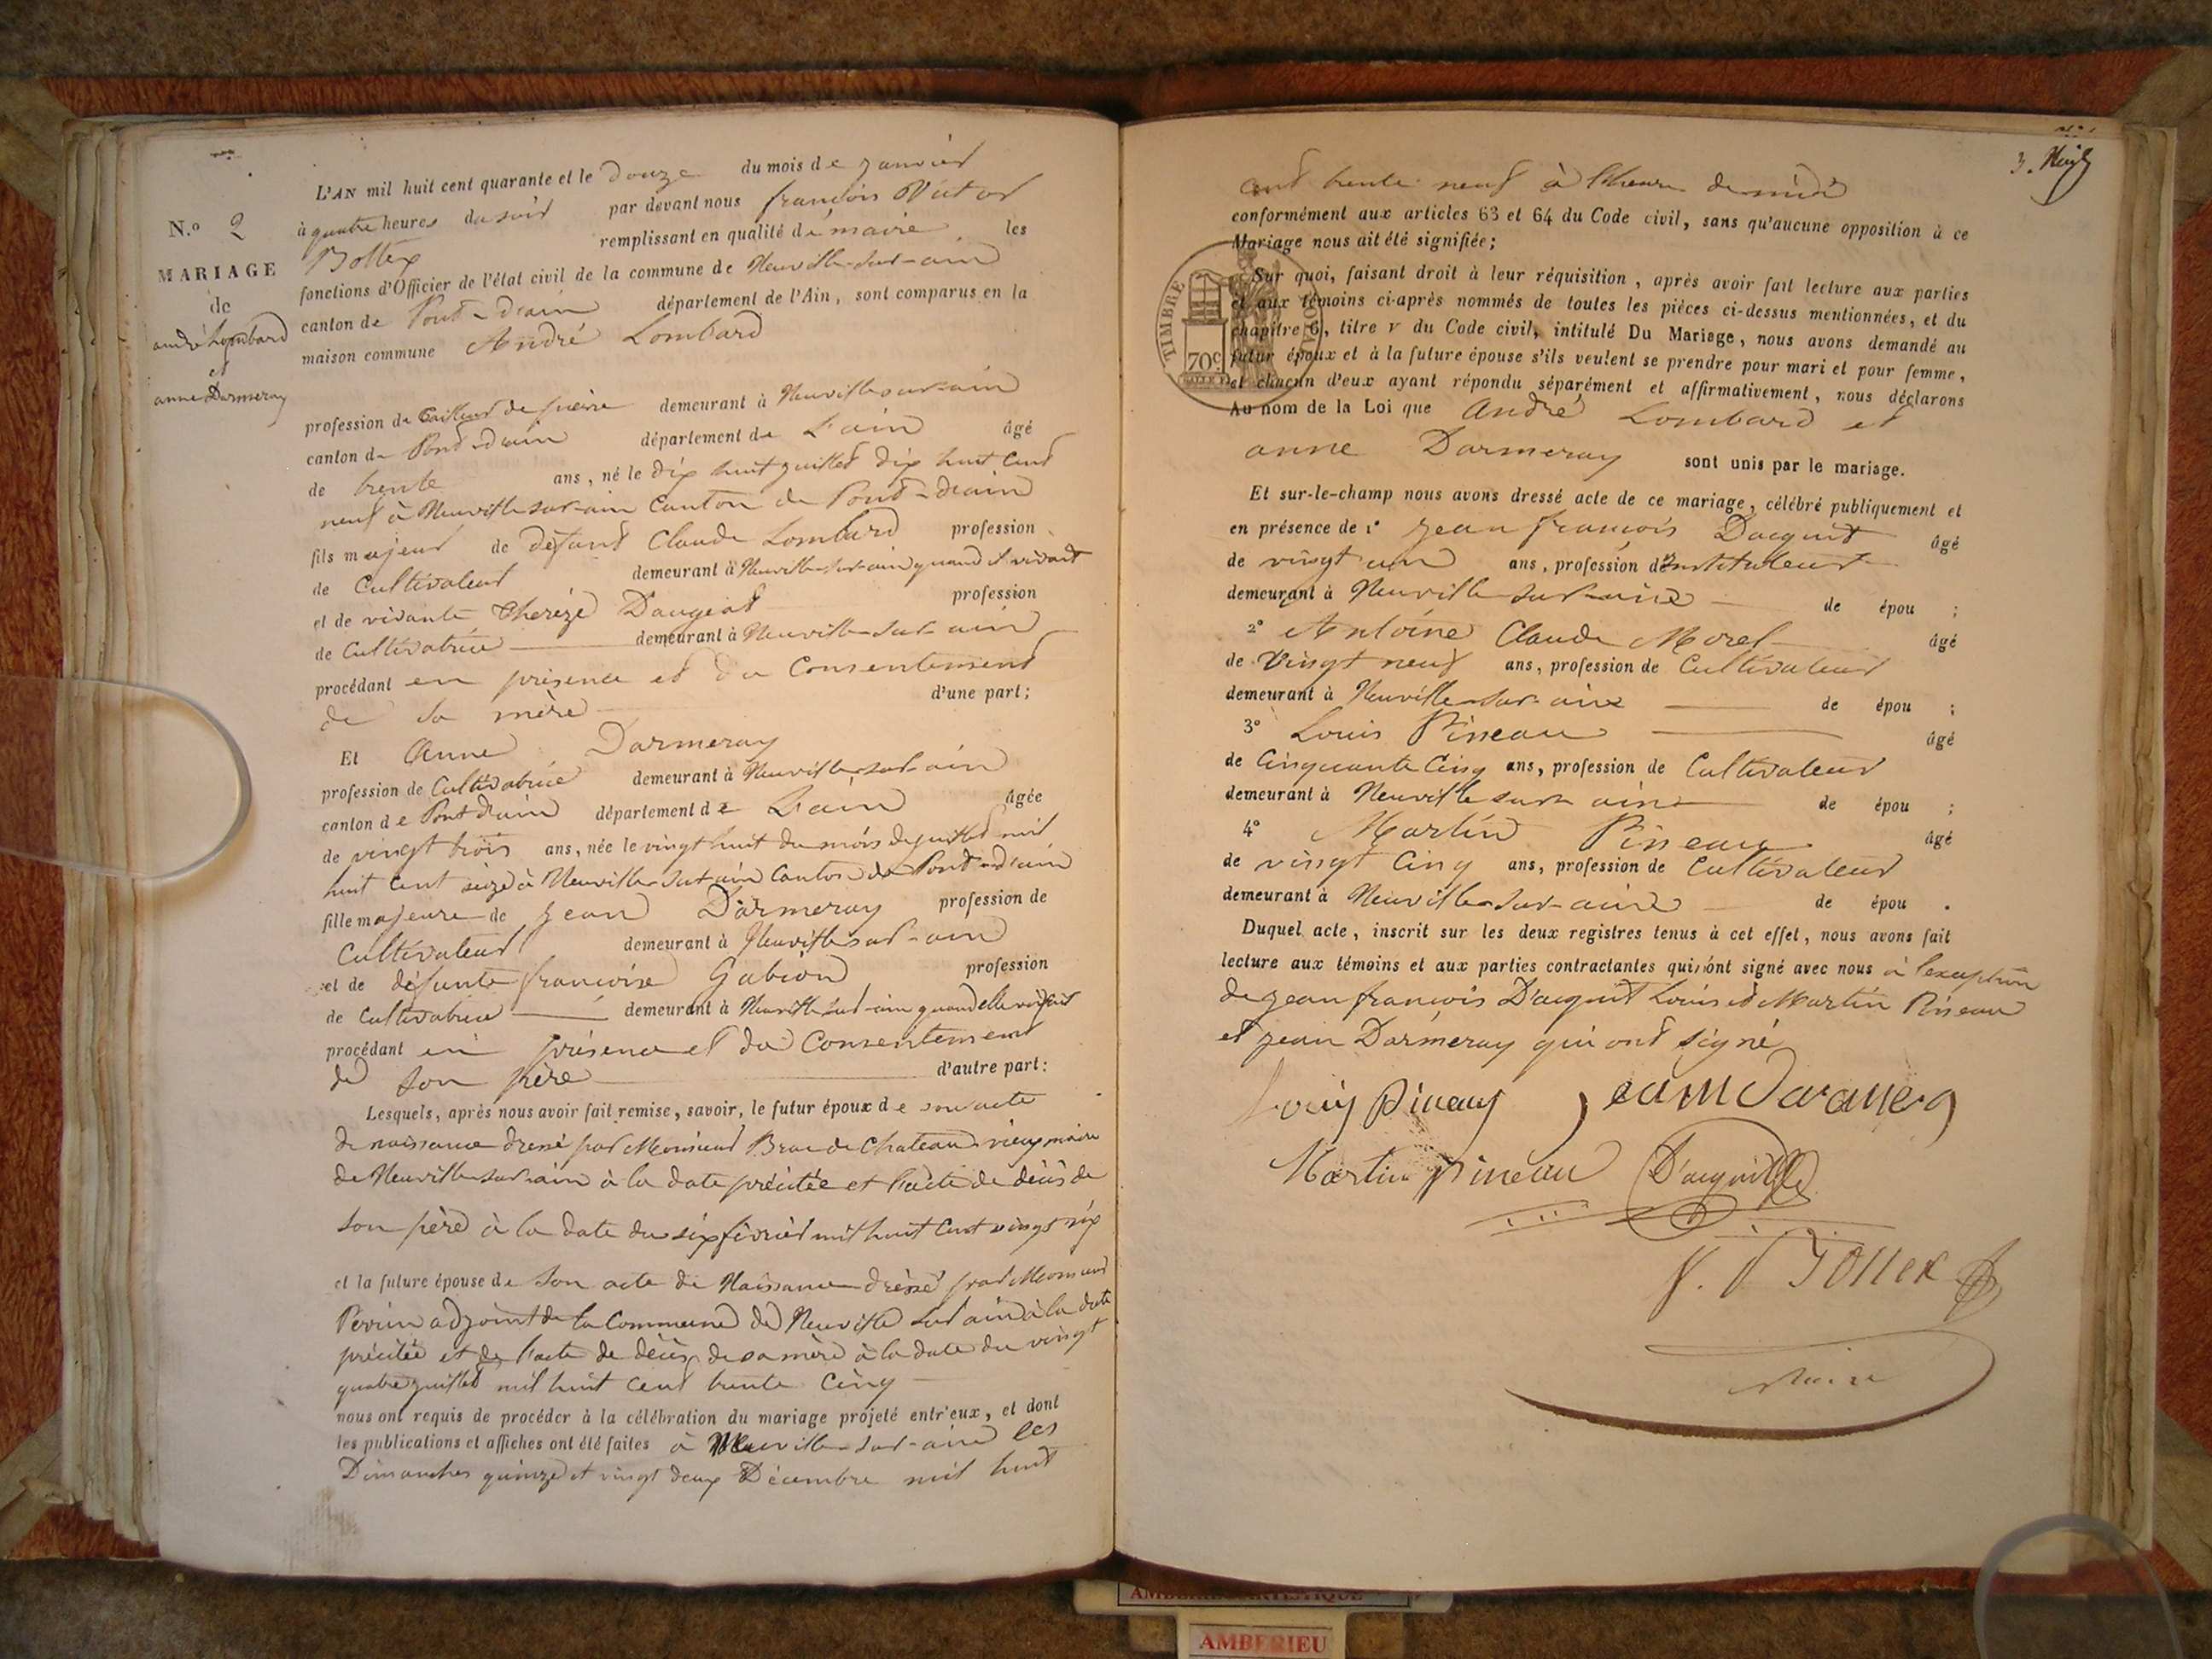 N.o 2
MARIAGE
de
andré Lombard
et
anne Darmeray
L'AN mil huit cent quarante et le douze du mois de janvier
à quatre heures du soir par devant nous françois Victor
Bottex remplissant en qualité de maire les
fonctions d'Officier de l'état civil de la commune de Neuville-sur-ain
canton de Pont-d'ain département de l'Ain, sont comparus en la
maison commune André Lombard
profession de tailleur de pierre demeurant à Neuville sur-ain
canton de Pont-d'ain département de L'ain âgé
de trente ans, né le dix huit juillet dix huit cent
neuf à Neuville sur-ain Canton de Pont-d'ain
fils majeur de défunt Claude Lombard profession
de Cultivateur demeurant à Neuville-sur-ain quand il vivait
et de vivante Therèze Daugeat profession
de Cultivatrice demeurant à Neuville-sur-ain
procédant en présence et du Consentement
de sa mère d'une part;
Et Anne Darmeray
profession de Cultivatrice demeurant à Neuville-sur-ain
canton de Pont d'ain département de L'ain âgée
de vingt trois ans, née le vingt huit du mois de juillet mil
huit cent seize à Neuville-sur ain Canton de Pont-d'ain
fille majeure de Jean Darmeray profession de
Cultivateur demeurant à Neuville sur-ain
et de défunte françoise Gabion profession
de Cultivatrice demeurant à Neuville sur-ain quand elle vivait
procédant en présence et du Consentement
de son père d'autre part:
Lesquels, après nous avoir fait remise, savoir, le futur époux de son acte
de naissance dressé par Monsieur Brac de Chateau-vieux maire
de Neuville-sur-ain à la date précitée et l'acte de décès de
son père à la date du six février mil huit cent vingt six
et la future épouse de son acte de Naissance dressé par Monsieur
Perrin adjoint de la Commune de Neuville sur ain à la date
précitée et de l'acte de décès de sa mère à la date du vingt
quatre juillet mil huit cent trente cinq
nous ont requis de procéder à la célébration du mariage projeté entr'eux, et dont
les publications et affiches ont été faites à Neuville-sur-ain les
Dimanches quinze et vingt deux Décembre mil huit
cent trente neuf à l'heure de midi
conformément aux articles 63 et 64 du Code civil, sans qu'aucune opposition à ce
Mariage nous ait été signifiée;
Sur quoi, faisant droit à leur réquisition, après avoir fait lecture aux parties
et aux témoins ci-après nommés de toutes les pièces ci-dessus mentionnées, et du
chapitre 6, titre v du Code civil, intitulé Du Mariage, nous avons demandé au
futur époux et à la future épouse s'ils veulent se prendre pour mari et pour femme,
et chacun d'eux ayant répondu séparément et affirmativement, nous déclarons
Au nom de la Loi que André Lombard et
anne Darmeray sont unis par le mariage.
Et sur-le-champ nous avons dressé acte de ce mariage, célébré publiquement et
en présence de 1° Jean françois Dacquit âgé
de vingt un ans, profession d'instituteur
demeurant à Neuville sur-ain de épou ;
2° Antoine Claude Morel âgé
de Vingt neuf ans, profession de Cultivateur
demeurant à Neuville-sur-ain de épou ;
3° Louis Pineau âgé
de Cinquante Cinq ans, profession de Cultivateur
demeurant à Neuville sur ain de épou ;
4° Martin Pineau âgé
de vingt Cinq ans, profession de Cultivateur
demeurant à Neuville-sur-ain de épou .
Duquel acte, inscrit sur les deux registres tenus à cet effet, nous avons fait
lecture aux témoins et aux parties contractantes qui ont signé avec nous à l'exception
de jean françois D'acquit Louis et Martin Pineau
et jean Darmeray qui ont signé
Louis Pineau
Martin pineau
Maire
TIMBRE
70c
AMBERIEU